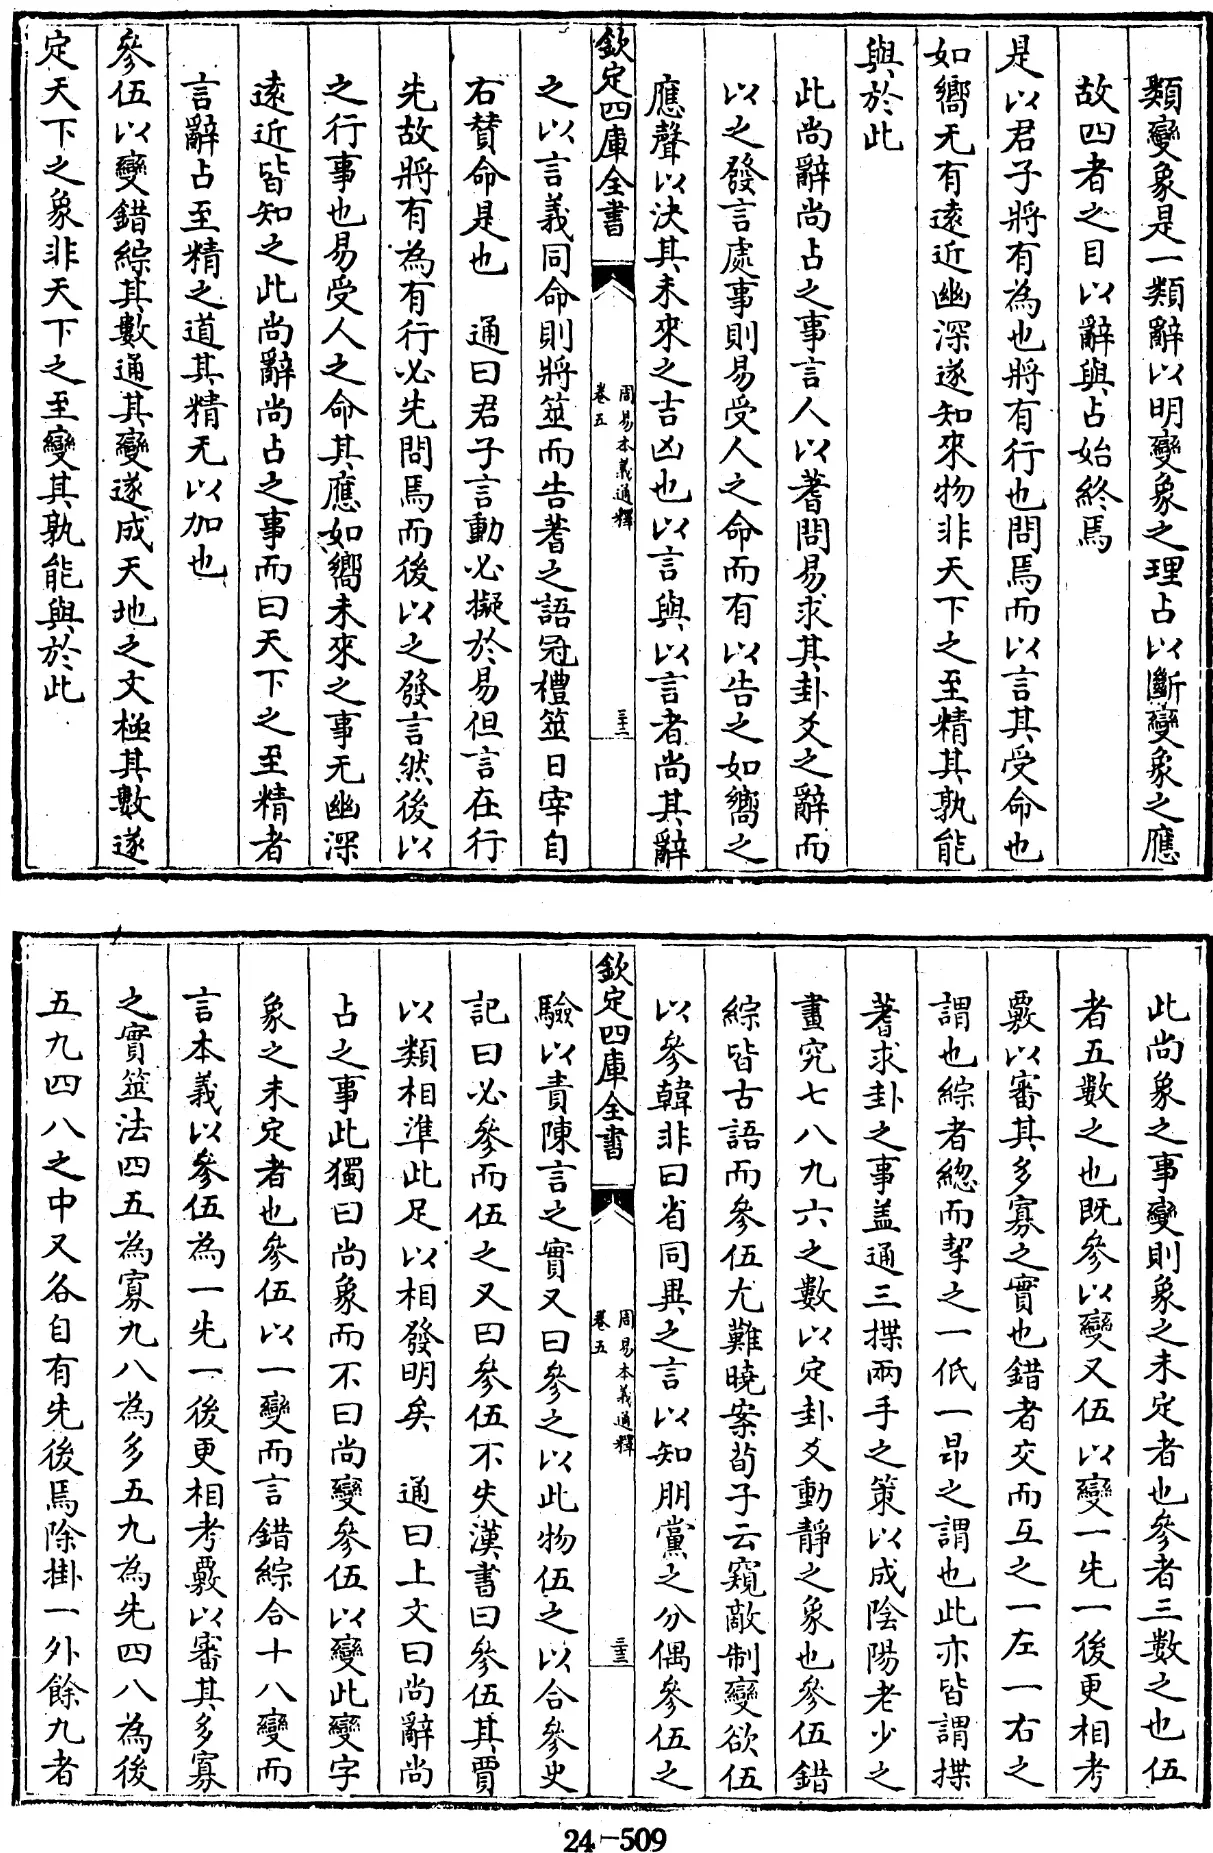 類變象是一類辭以明變象之理占以斷變象之應
故四者之目以辭與占始終焉
是以君子將有為也將有行也問焉而以言其受命也
如嚮无有遠近幽深遂知來物非天下之至精其孰能
與於此
此尚辭尚占之事言人以蓍問易求其卦爻之辭而
以之發言處事則易受人之命而有以告之如嚮之
應聲以決其未來之吉凶也以言與以言者尚其辭
欽定四庫全書
周易本義通釋
卷五
三十二
之以言義同命則將筮而告蓍之語冠禮筮日宰自
右贊命是也　通曰君子言動必擬於易但言在行
先故將有為有行必先問焉而後以之發言然後以
之行事也易受人之命其應如嚮未來之事无幽深
遠近皆知之此尚辭尚占之事而曰天下之至精者
言辭占至精之道其精无以加也
參伍以變錯綜其數通其變遂成天地之文極其數遂
定天下之象非天下之至變其孰能與於此
此尚象之事變則象之未定者也參者三數之也伍
者五數之也既參以變又伍以變一先一後更相考
覈以審其多寡之實也錯者交而互之一左一右之
謂也綜者總而挈之一低一昂之謂也此亦皆謂揲
蓍求卦之事盖通三揲兩手之策以成陰陽老少之
畫究七八九六之數以定卦爻動靜之象也參伍錯
綜皆古語而參伍尤難曉案荀子云窺敵制變欲伍
以參韓非曰省同異之言以知朋黨之分偶參伍之
欽定四庫全書
周易本義通釋
卷五
三十三
驗以責陳言之實又曰參之以此物伍之以合參史
記曰必參而伍之又曰參伍不失漢書曰參伍其賈
以類相準此足以相發明矣　通曰上文曰尚辭尚
占之事此獨曰尚象而不曰尚變參伍以變此變字
象之未定者也參伍以一變而言錯綜合十八變而
言本義以參伍為一先一後更相考覈以審其多寡
之實筮法四五為寡九八為多五九為先四八為後
五九四八之中又各自有先後焉除掛一外餘九者
24-509